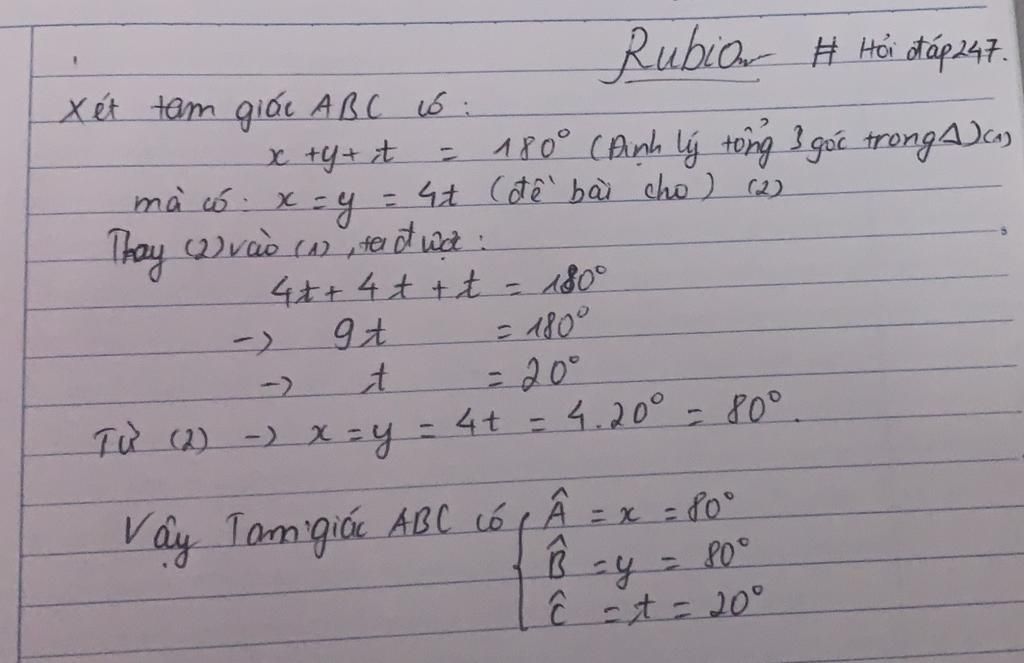 Rubia # Hỏi đáp 247.
Xét tam giác ABC có:
x + y + t = 180° (Định lý tổng 3 góc trong Δ) (1)
mà có: x = y = 4t (đề bài cho) (2)
Thay (2) vào (1), ta được:
4t + 4t + t = 180°
-> 9t = 180°
-> t = 20°
Từ (2) -> x = y = 4t = 4.20° = 80°.
Vậy Tam giác ABC có { Â = x = 80°
B̂ = y = 80°
Ĉ = t = 20°